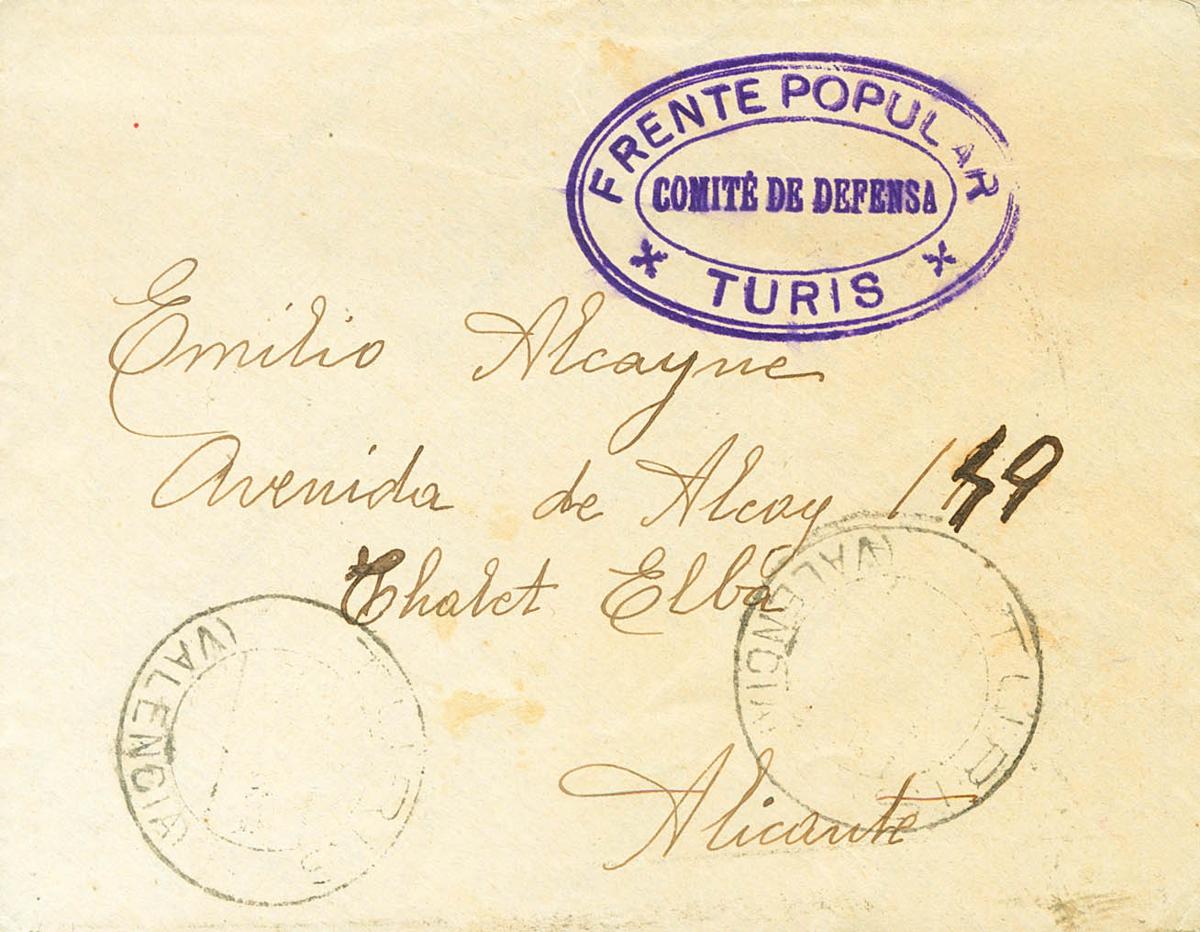 FRENTE POPULAR
COMITÉ DE DEFENSA
* TURIS *
Emilio Alcayne
Avenida de Alcoy
Chalet Elba
Alicante
TURIS
(VALENCIA)
TURIS
(VALENCIA)